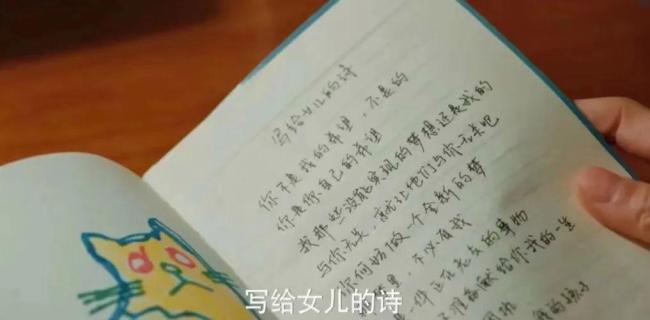 写给女儿的诗
你不是我的希望，不是的
你是你自己的希望
我那些没能实现的梦想还是我的
与你无关，就让他们与你无关吧
你何妨做一个全新的梦
不必有我
一件正在老去的事物
献给你我的一生
我的孩子
写给女儿的诗